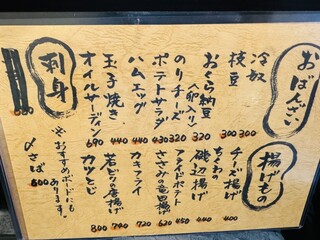 おばんざい
冷奴 300
枝豆 300
おくら納豆(卵入り) 320
のりチーズ 320
ポテトサラダ 430
ハムエッグ 440
玉子焼き 440
オイルサーディン 690
揚げもの
チーズ揚げ 400
ちくわの磯辺揚げ 440
フライドポテト 450
ささみの竜田揚げ 620
カキフライ 720
若どりの唐揚げ 740
カツとじ 800
刺身
〆さば 600
※おすすめボードにもあります。